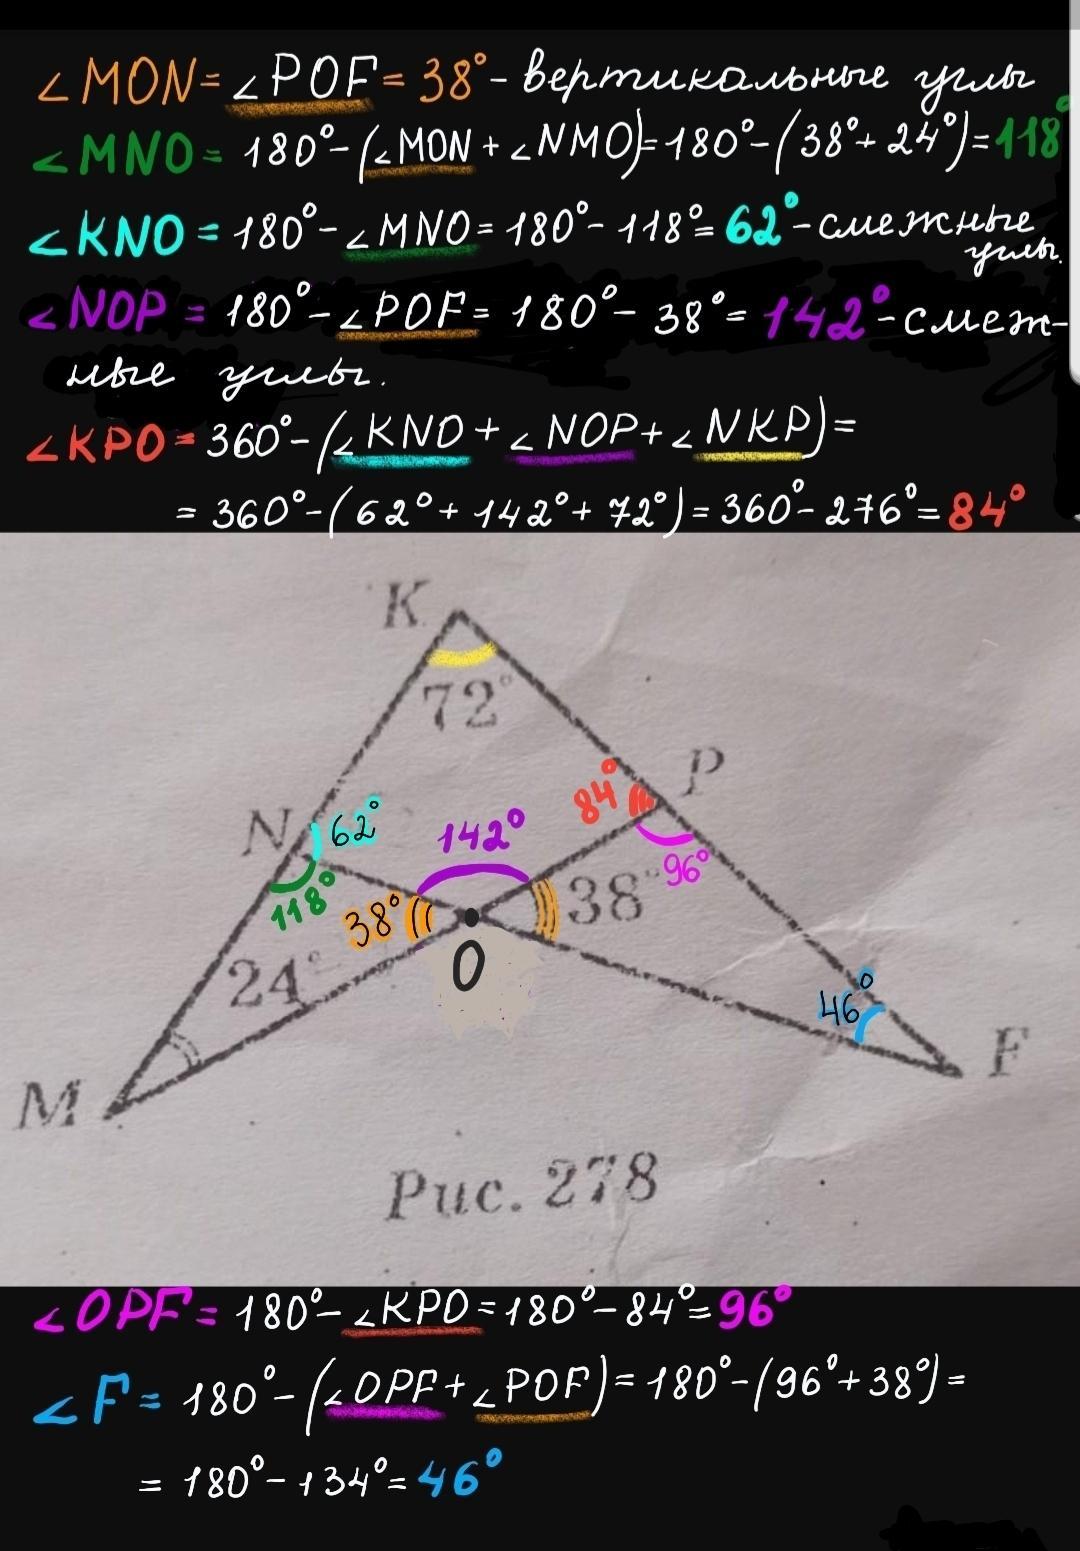 ∠MON = ∠POF = 38° - вертикальные углы
∠MNO = 180° - (∠MON + ∠NMO) = 180° - (38° + 24°) = 118°
∠KNO = 180° - ∠MNO = 180° - 118° = 62° - смежные
углы.
∠NOP = 180° - ∠POF = 180° - 38° = 142° - смеж-
ные углы.
∠KPO = 360° - (∠KNO + ∠NOP + ∠NKP) =
= 360° - (62° + 142° + 72°) = 360° - 276° = 84°
K
72°
P
84°
N 62° 142°
96°
118° 38° 38°
24° O
46°
F
M
Рис. 278
∠OPF = 180° - ∠KPO = 180° - 84° = 96°
∠F = 180° - (∠OPF + ∠POF) = 180° - (96° + 38°) =
= 180° - 134° = 46°